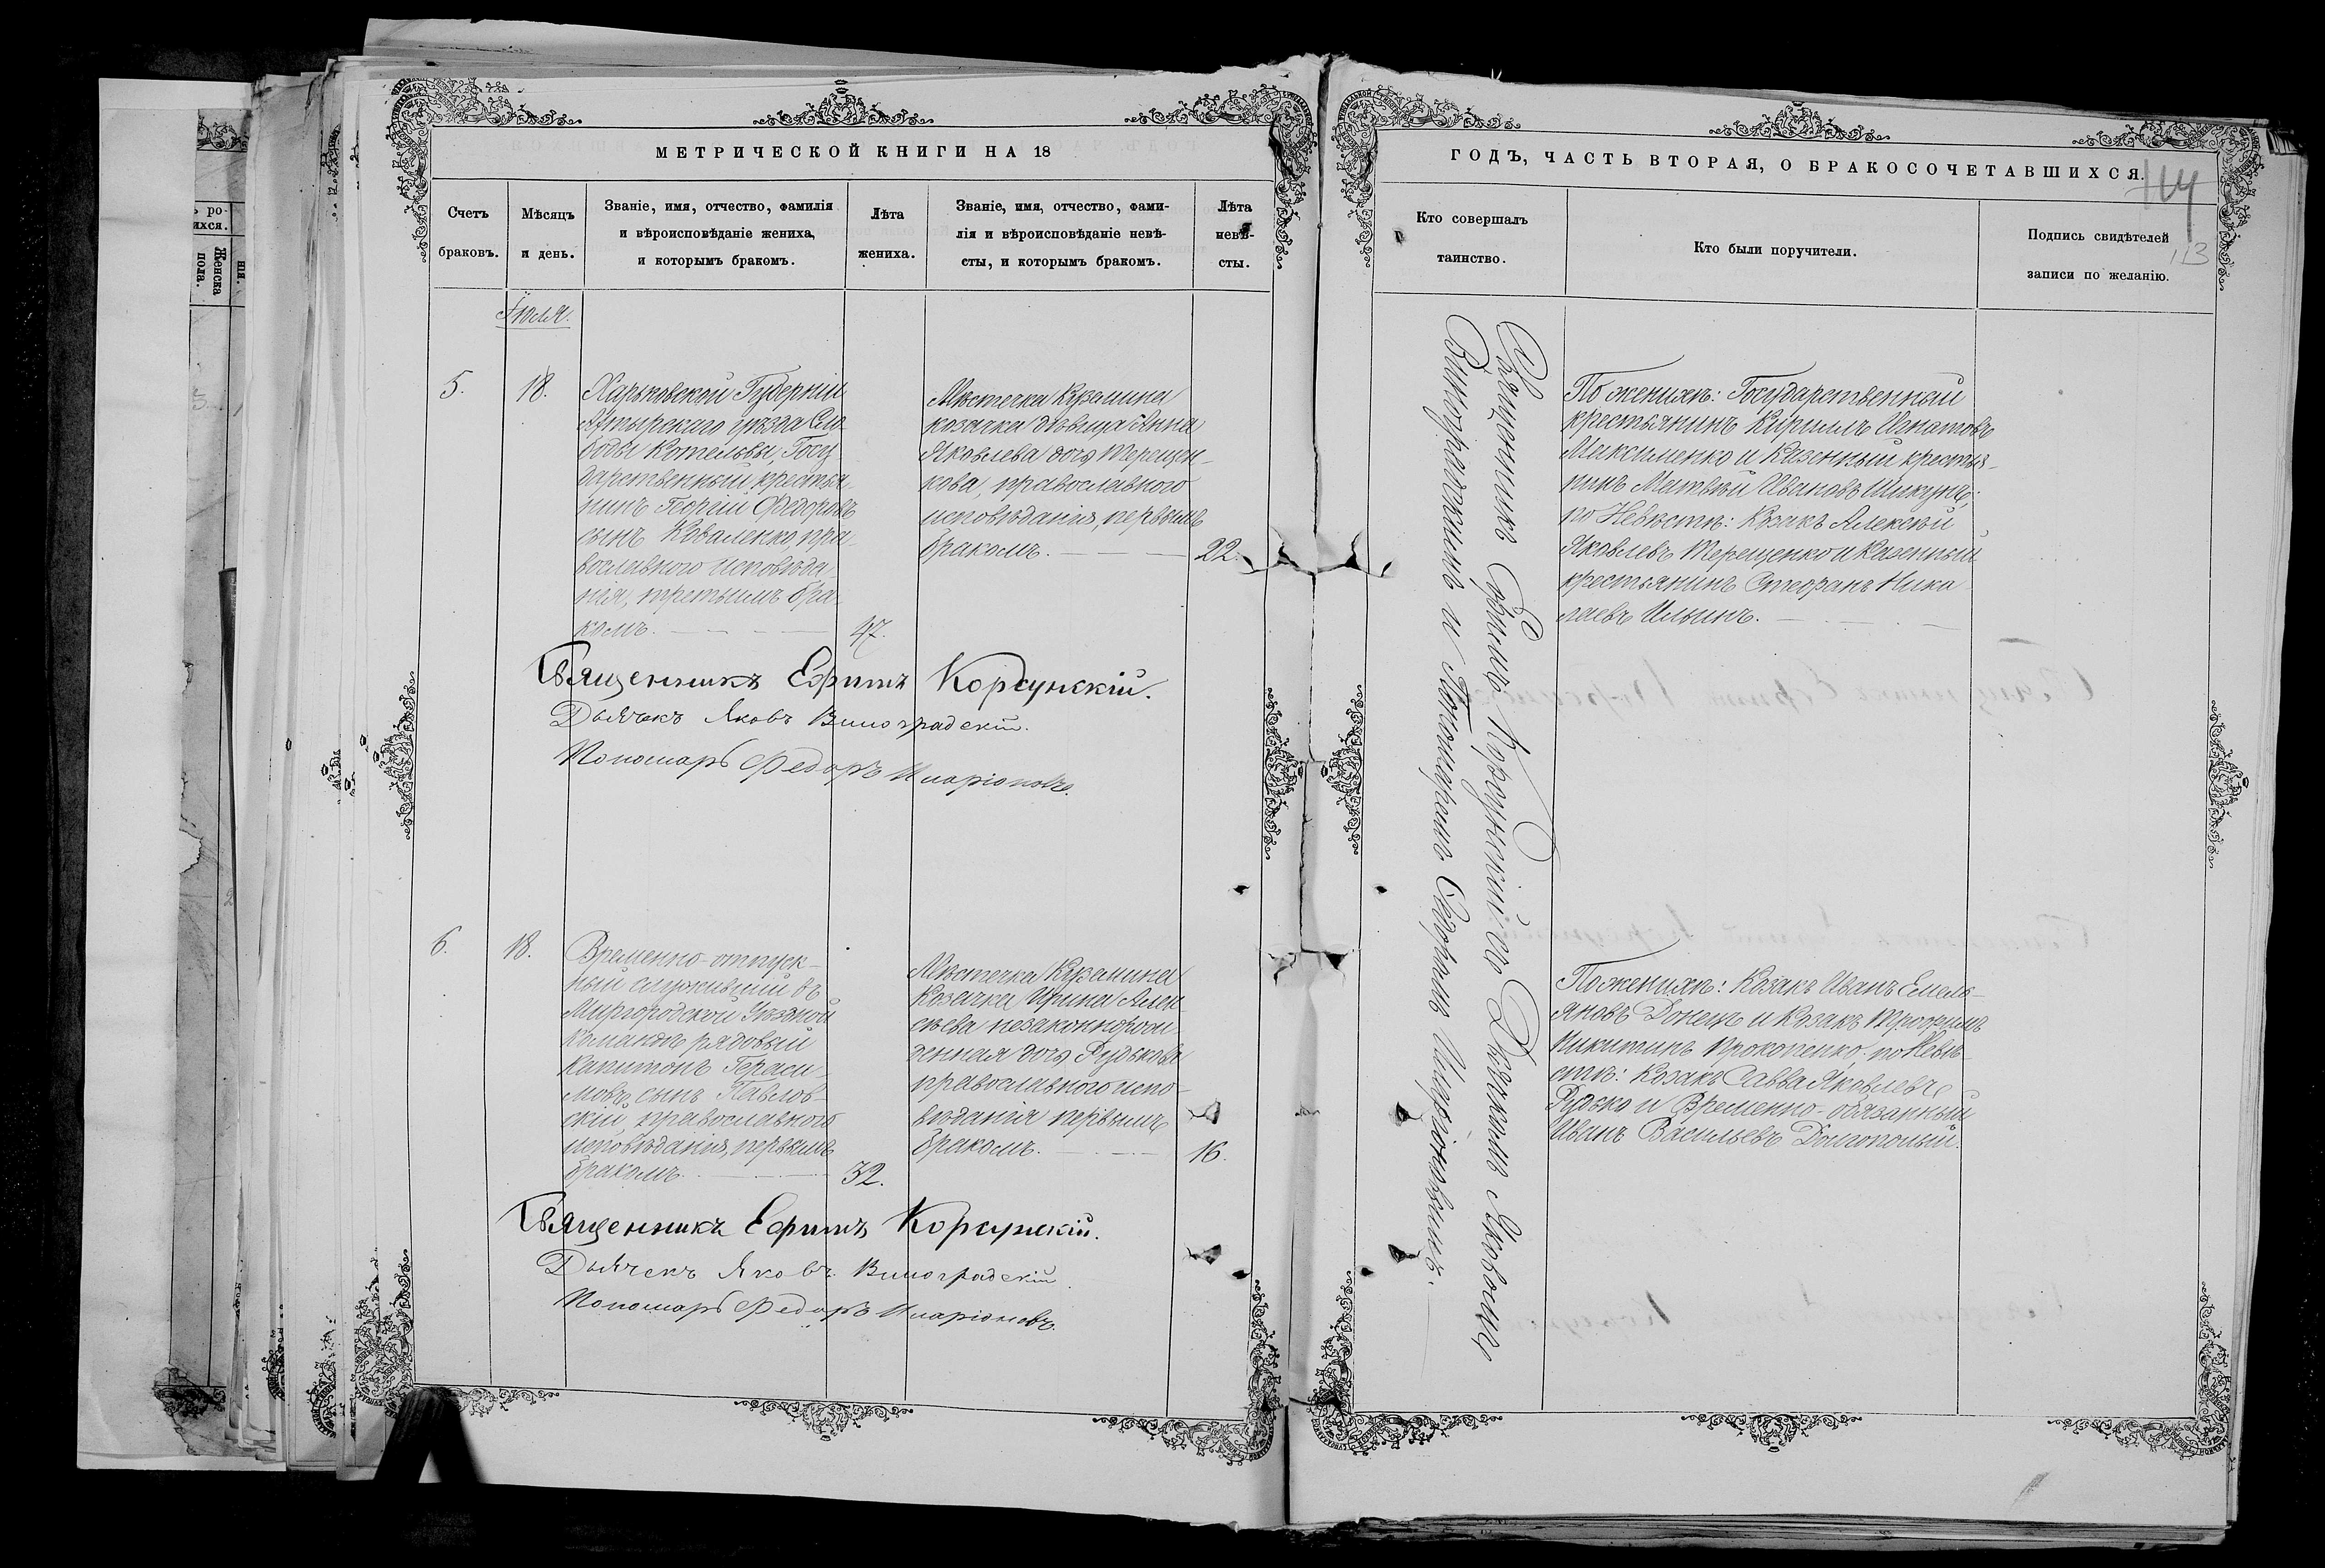 МЕТРИЧЕСКОЙ КНИГИ НА 18
Счетъ
браковъ.
Мѣсяцъ
и день.
Званіе, имя, отчество, фамилія
и вѣроисповѣданіе жениха,
и которымъ бракомъ.
Лѣта
жениха.
Званіе, имя, отчество, фами-
лія и вѣроисповѣданіе невѣ-
сты, и которымъ бракомъ.
Лѣта
невѣ-
сты.
Іюля.
5.
18.
Харьковской Губерніи
Ахтырскаго уѣзда Сло-
боды Котельвы, Госу
дарственный крестья-
нинъ Георгій Ѳедоровъ
сынъ Коваленко, пра-
вославного исповѣда-
нія, третьимъ бра-
комъ.
47.
Мѣстечка Кузмина
козачка дѣвица Анна
Яковлева дочь Терещен-
кова, православного
исповѣданія, первымъ
бракомъ.
22.
Священникъ Ефимъ Корсунскій.
Дьячекъ Яковъ Виноградскій.
Пономарь Федоръ Иларіоновъ.
6.
18.
Временно-отпуск-
ный служившій въ
Миргородской Уѣздной
Командѣ рядовый
Капитонъ Гераси-
мовъ сынъ Павлов-
скій, православного
исповѣданія, первымъ
бракомъ.
32.
Мѣстечка Кузмина
Козачка Ирина Алек
сѣева незаконнорож-
денная дочь Рудькова
православного испо-
вѣданія первымъ
бракомъ.
16.
Священникъ Ефимъ Корсунскій.
Дьячекъ Яковъ Виноградскій.
Пономарь Федоръ Иларіоновъ.
ГОДЪ, ЧАСТЬ ВТОРАЯ, О БРАКОСОЧЕТАВШИХСЯ.
114
113
Кто совершалъ
таинство.
Кто были поручители.
Подпись свидѣтелей
записи по желанію.
Священникъ Ефимъ Корсунскій съ Дьячкомъ Яковомъ
Виноградскимъ и Пономаремъ Ѳедоромъ Иларіоновымъ.
По женихѣ: Государственный
крестьянинъ Кириллъ Игнатовъ
Максименко и Казенный крестья-
нинъ Матвѣй Ивановъ Шикунъ;
по Невѣстѣ: Козакъ Алексѣй
Яковлевъ Терещенко и Казенный
крестьянинъ Стефанъ Нико
лаевъ Ильинъ.
По женихѣ: Козакъ Иванъ Емель-
яновъ Донецъ и Козакъ Трофимъ
Никитинъ Прокопенко; по Невѣ-
стѣ: Козакъ Савва Яковлевъ
Рудько и Временно-обязанный
Иванъ Васильевъ Долгополый.